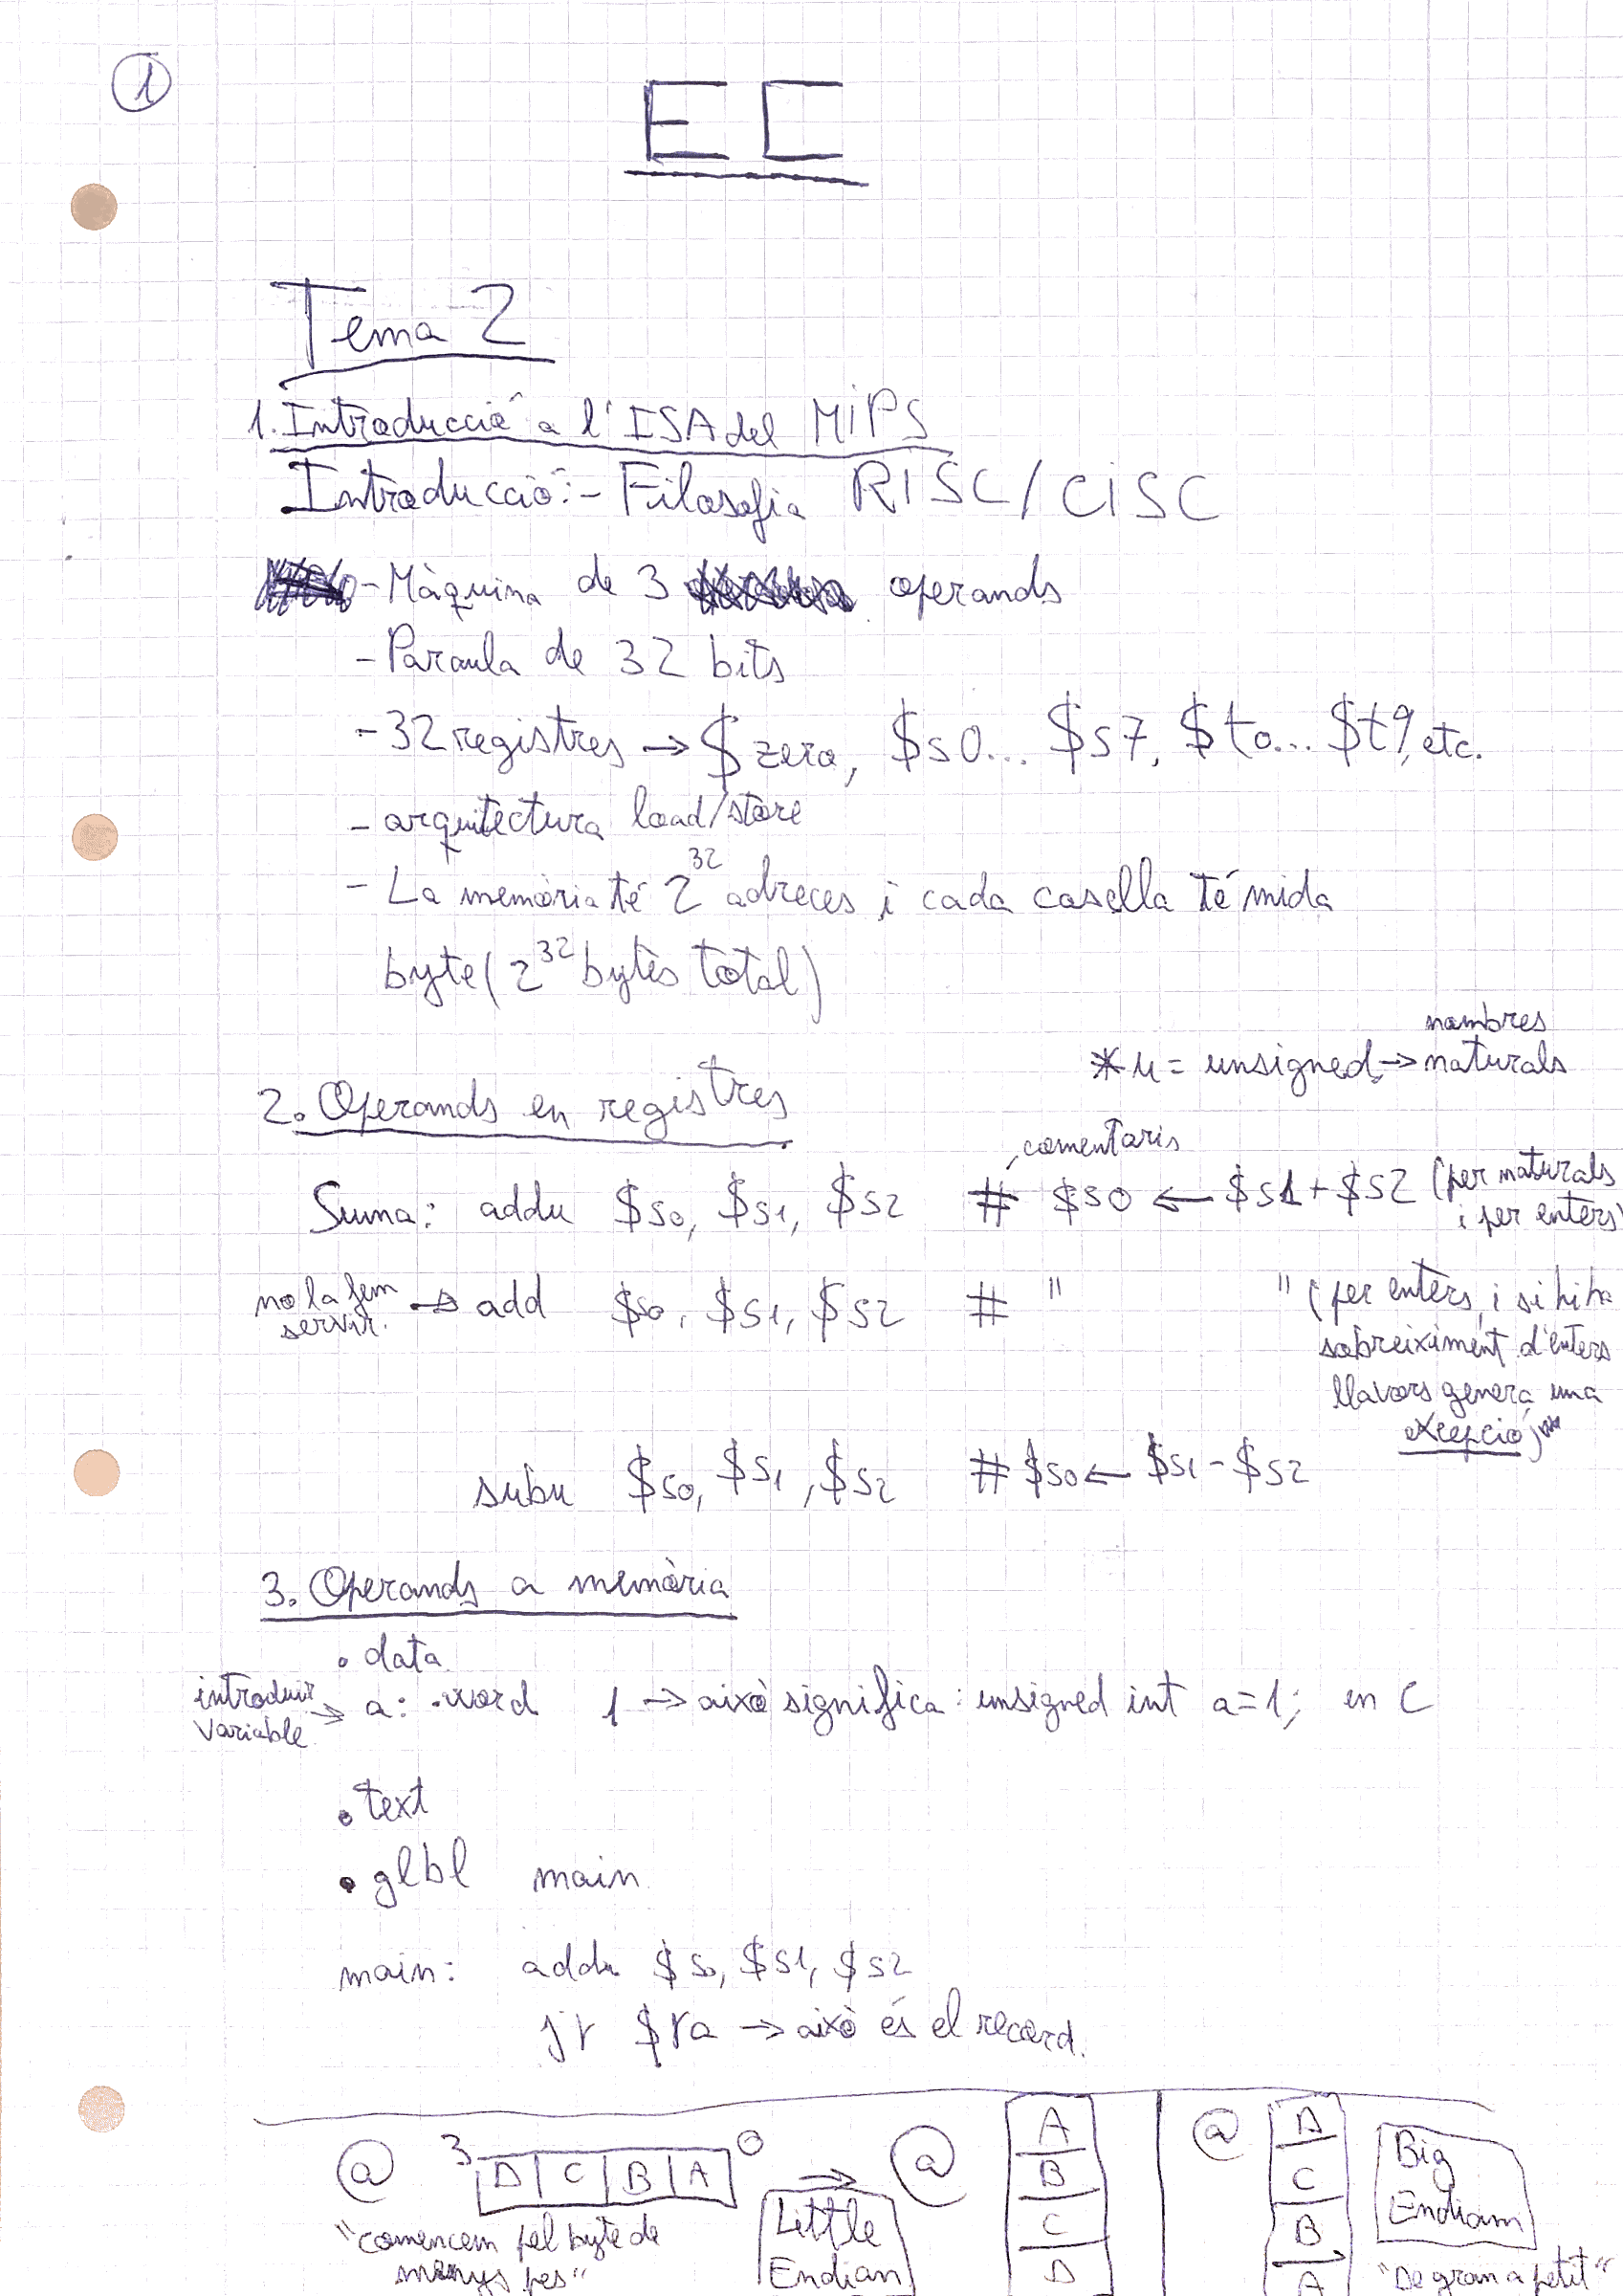 1
EC
Tema 2
1. Introducció a l'ISA del MIPS
Introducció: - Filosofia RISC/CISC
- Màquina de 3 operands
- Paraula de 32 bits
- 32 registres → $zero, $s0... $s7, $t0... $t9, etc.
- arquitectura load/store
- La memòria té 2^32 adreces i cada casella té mida
byte (2^32 bytes total)
* u = unsigned → nombres naturals
2. Operands en registres
comentaris
Suma: addu $s0, $s1, $s2 # $s0 ← $s1 + $s2 (per naturals
i per enters)
no la fem servir. → add $s0, $s1, $s2 # " " (per enters, i si hi ha
sobreiximent d'enters
llavors genera una
excepció)
subu $s0, $s1, $s2 # $s0 ← $s1 - $s2
3. Operands a memòria
.data
introduir variable → a: .word 1 → això significa: unsigned int a=1; en C
.text
.glbl main
main: addu $s0, $s1, $s2
jr $ra → això és el record.
@ 3 D C B A 0 ⇒ @ A @ D Big
B C Endian
"comencem pel byte de Little C B
menys pes" Endian D A "De gran a petit"